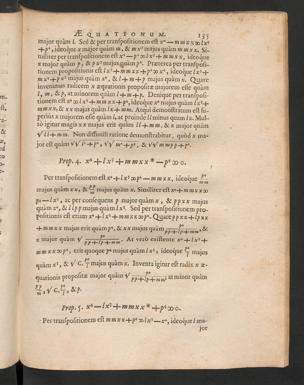 ÆQUATIONUM. 135
major quàm l. Sed & per transpositionem est x⁴ — mmxx ∞ lx³
+ p⁴, ideoque x major quàm m, & mx³ majus quàm mmxx. Si-
militer per transpositionem est x⁴ — p⁴ ∞ lx³ + mmxx, ideoque
x major quàm p, & px³ majus quàm p⁴. Præterea per transposi-
tionem propositionis est lx³ + mmxx + p⁴ ∞ x⁴, ideoque lx³ +
mx³ + px³ majus quàm x⁴, & l + m + p majus quàm x. Quare
invenimus radicem x æquationis propositæ majorem esse quàm
l, m, & p, at minorem quàm l + m + p. Denique per transpositio-
nem est x⁴ ∞ lx³ + mmxx + p⁴, ideoque x⁴ majus quàm lx³ +
mmxx, & xx majus quàm lx + mm. Atqui demonstratum est su-
periùs x majorem esse quàm l, at proinde l minus quàm lx. Mul-
tò igitur magis xx majus erit quàm ll + mm, & x major quàm
√ ll + mm. Non dissimili ratione demonstrabitur, quòd x ma-
jor est quàm
Prop. 4. x⁴ + lx³ + mmxx * — p⁴ ∞ 0.
Per transpositionem est x⁴ + lx³ ∞ p⁴ — mmxx, ideoque p⁴/mm
majus quàm xx, & pp/m majus quàm x. Similiter est x⁴ + mmxx ∞
p⁴ — lx³, ac per consequens p major quàm x, & ppxx majus
quàm x⁴, & lpp majus quàm lx³. Sed per transpositionem pro-
positionis est etiam x⁴ + lx³ + mmxx ∞ p⁴. Quare ppxx + lpxx
+ mmxx majus erit quàm p⁴, & xx majus quàm p⁴/pp + lp + mm, &
x major quàm √ p⁴/pp + lp + mm. At verò existente x⁴ + lx³ +
mmxx ∞ p⁴, erit quoque p⁴ majus quàm lx³, ideoque p⁴/l majus
quàm x³, & √ C. p⁴/l majus quàm x. Inventa igitur est radix x æ-
quationis propositæ major quàm √ p⁴/pp + lp + mm, at minor quàm
pp/m, √ C. p⁴/l, & p.
Prop. 5. x⁴ — lx³ + mmxx * + p⁴ ∞ 0.
Per transpositionem est mmxx + p⁴ ∞ lx³ — x⁴, ideoque l ma-
jor